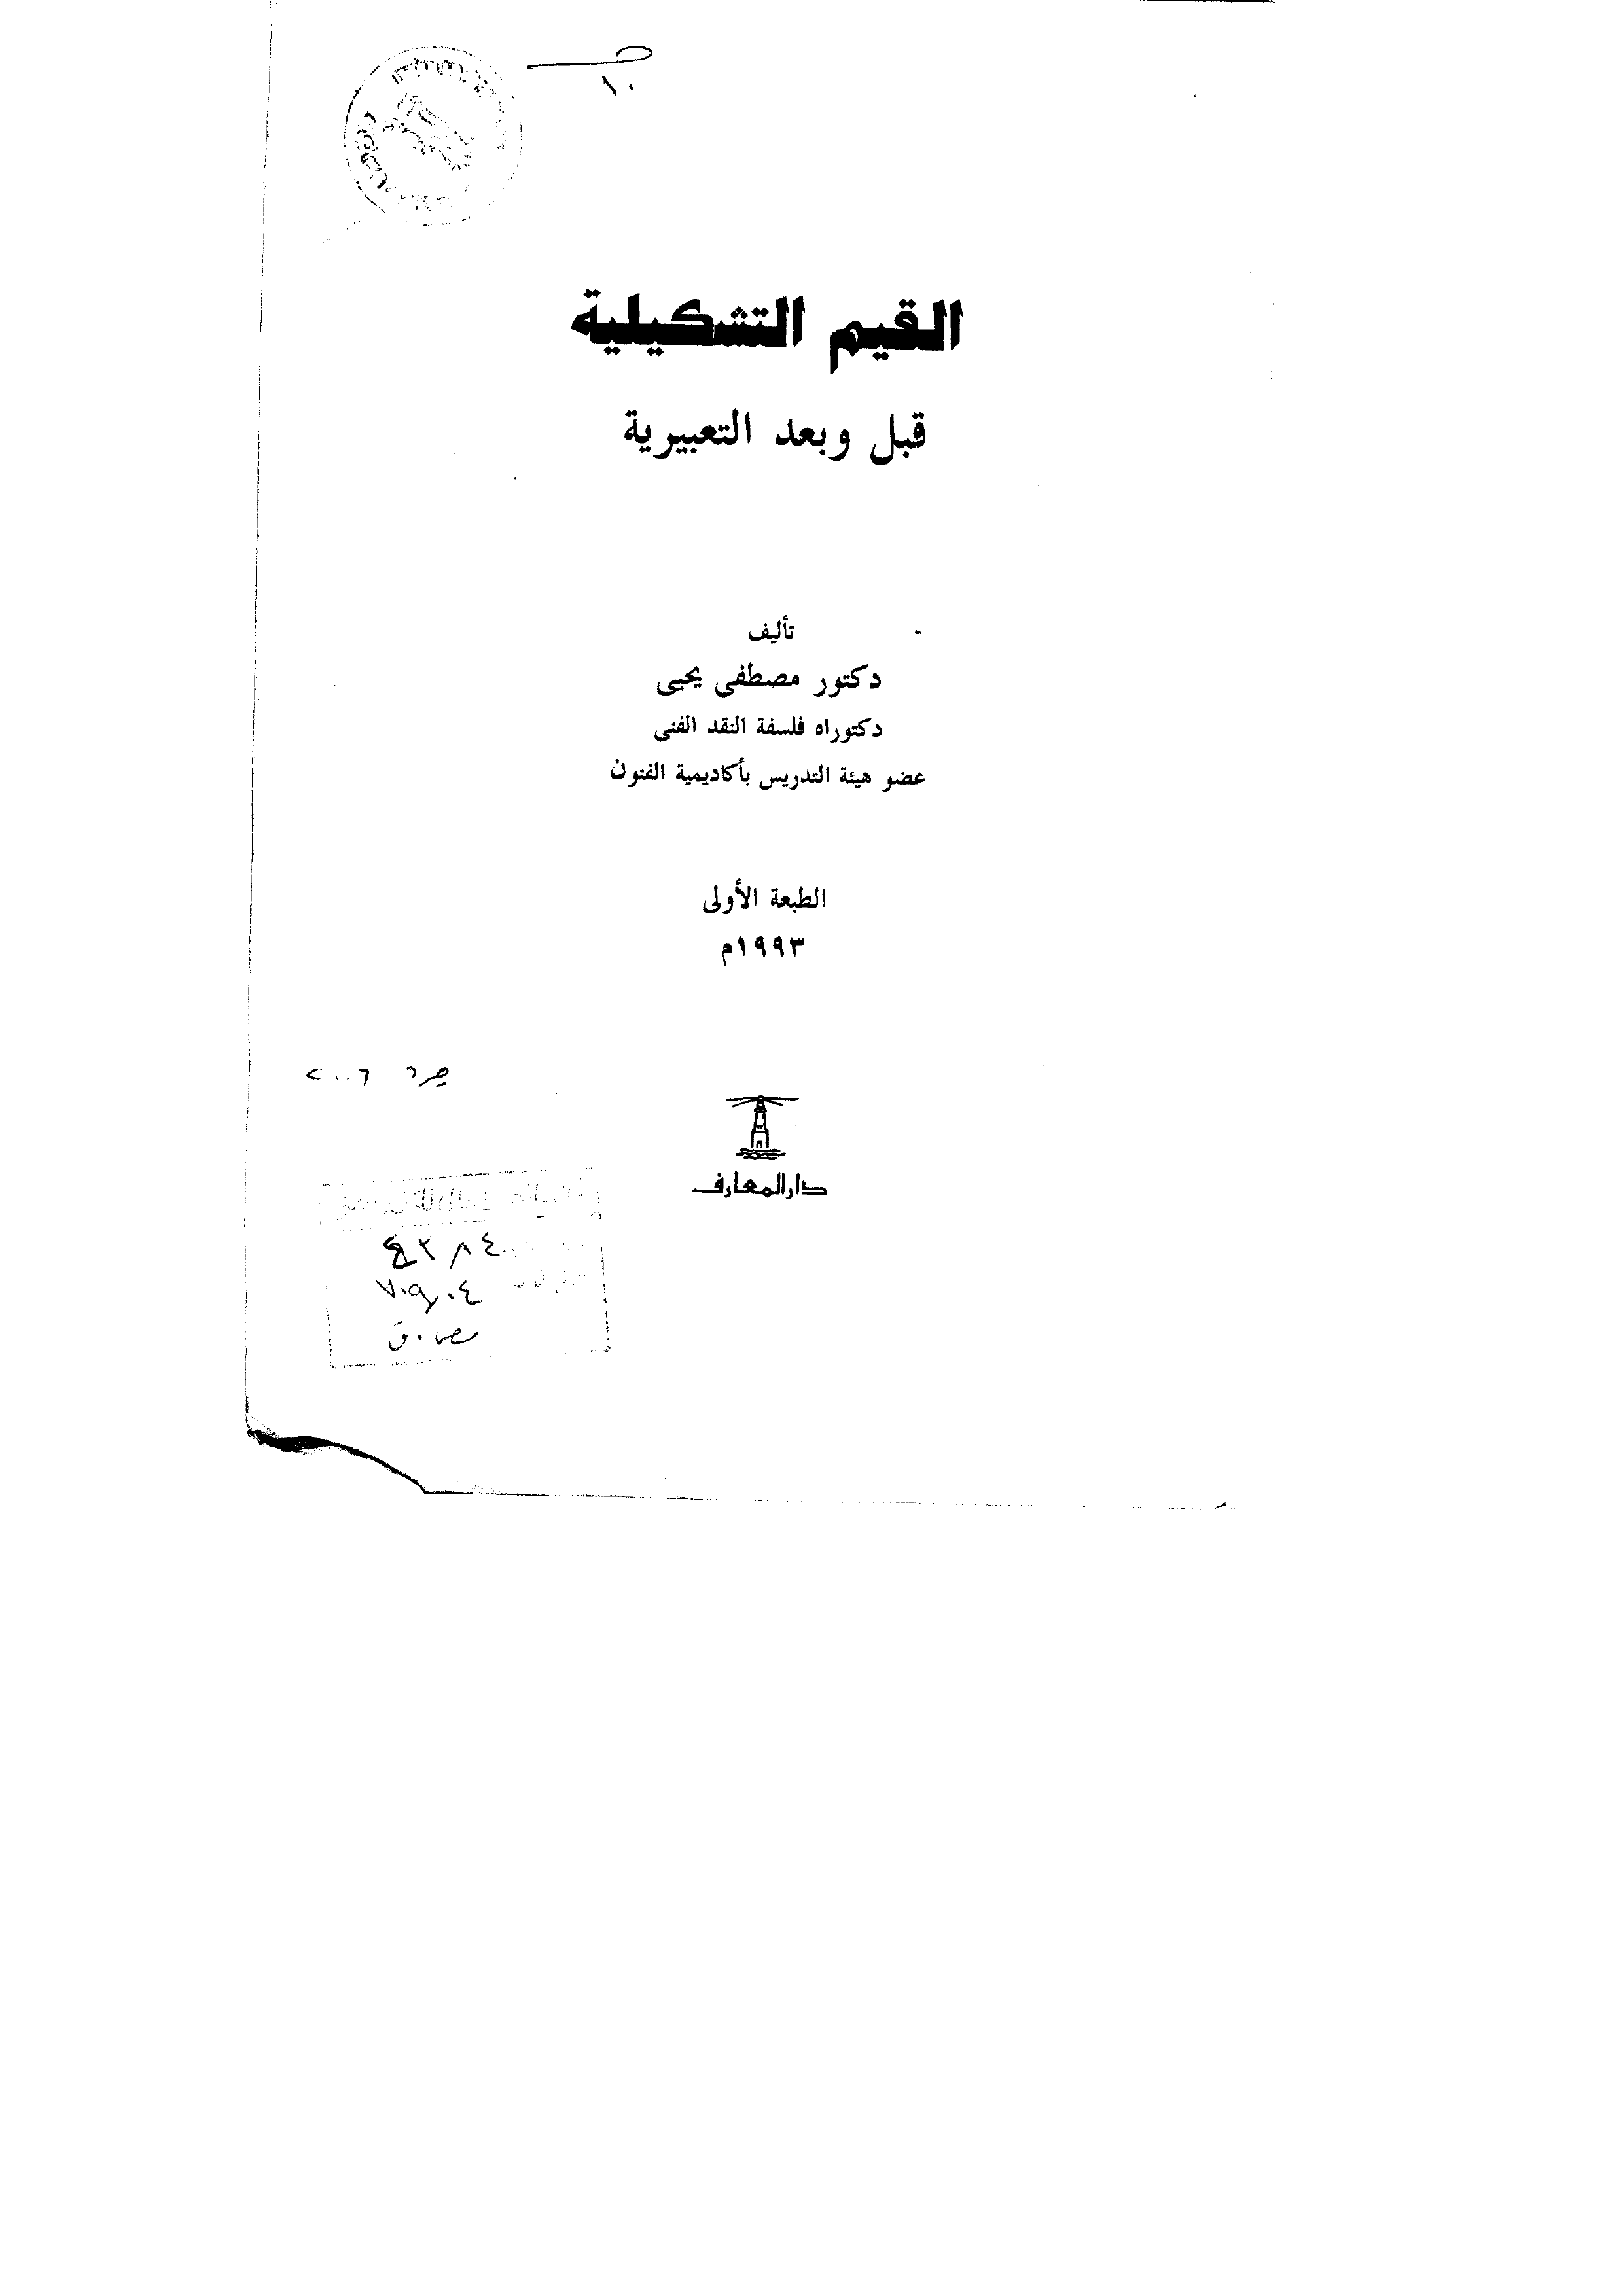 ١٠
القيم التشكيلية
قبل وبعد التعبيرية
تأليف
دكتور مصطفى يحيى
دكتوراه فلسفة النقد الفنى
عضو هيئة التدريس بأكاديمية الفنون
الطبعة الأولى
١٩٩٣م
جرد ٢٠٠٦
دار المعارف
٧٠٩,٠٤